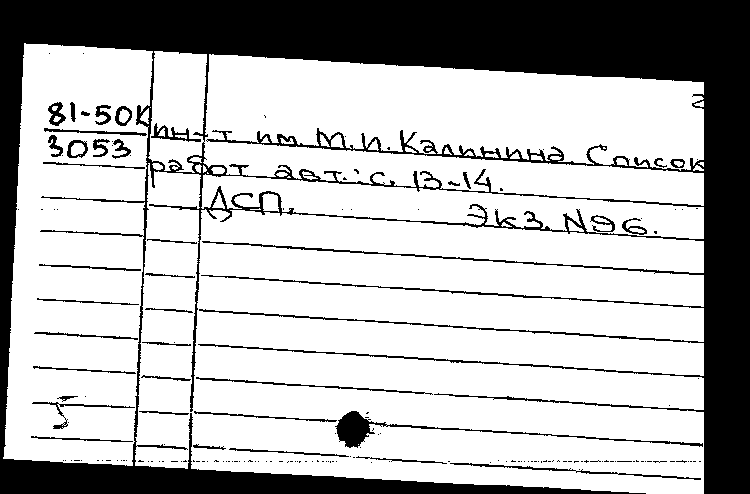 2
81-50К
3053
ин-т им. М.И. Калинина. Список
работ авт.: с. 13-14.
ДСП. Экз. N96.
5